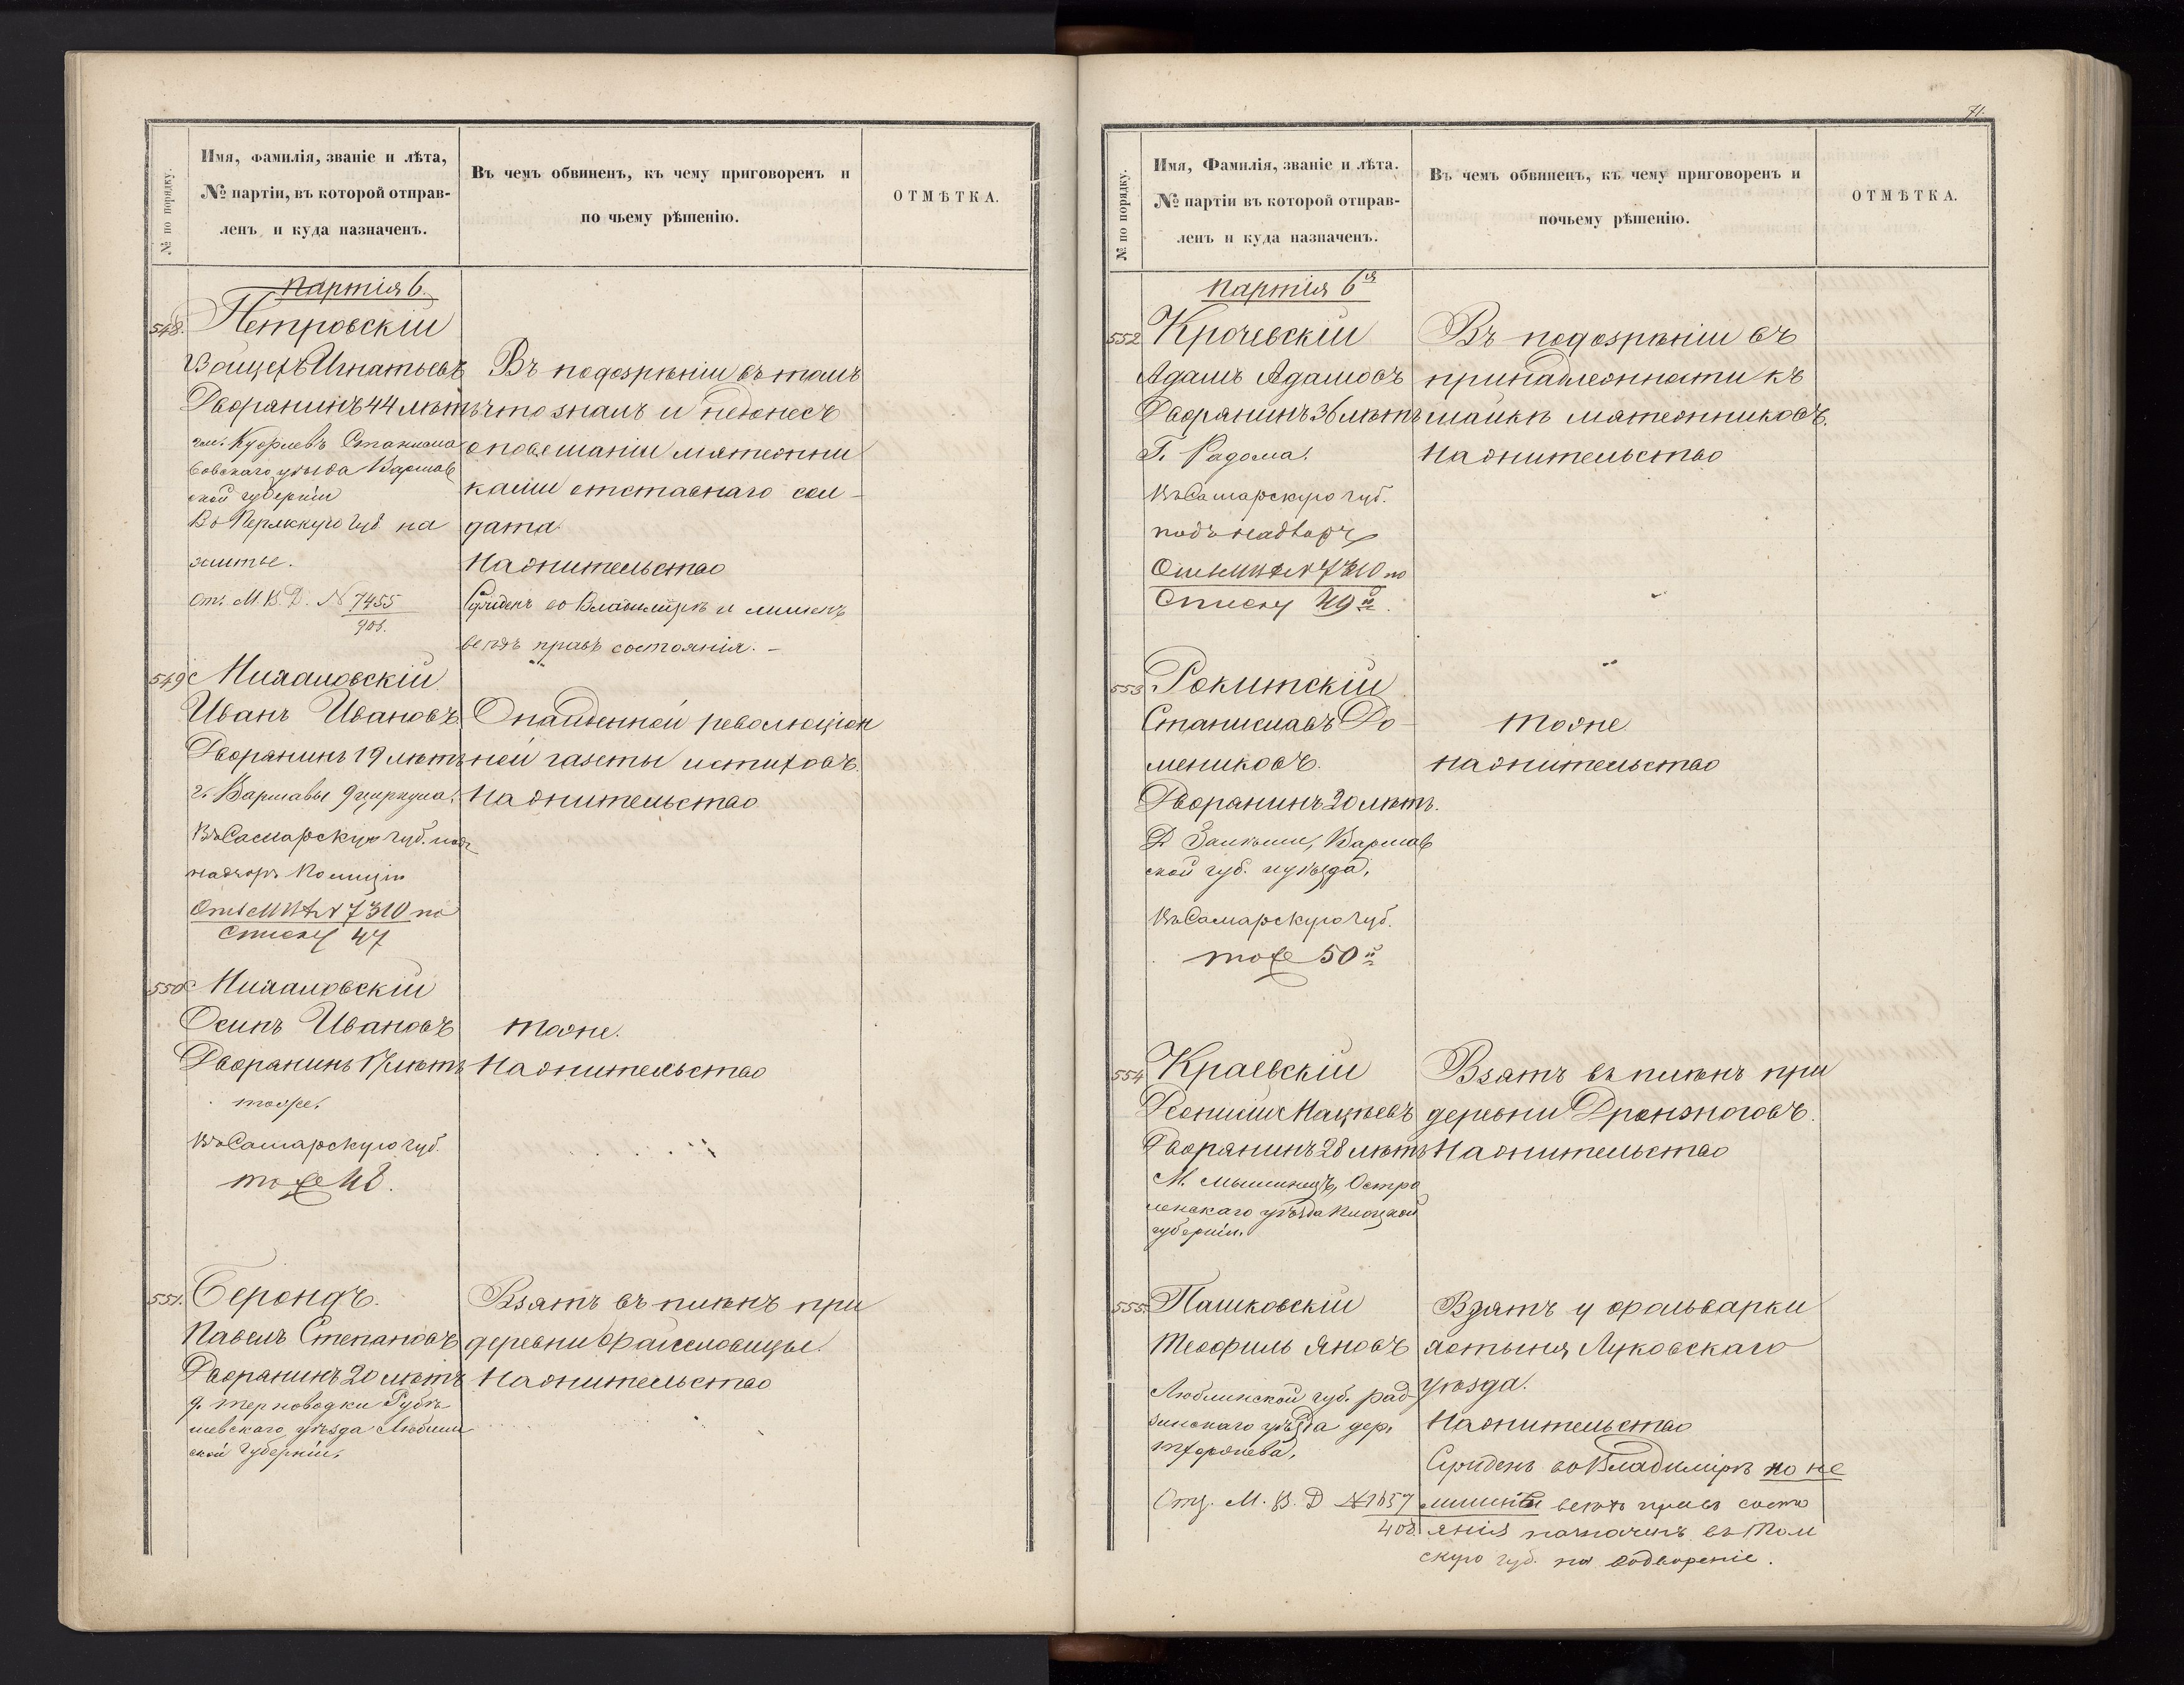 № по порядку.
Имя, фамилія, званіе и лѣта,
№ партіи, въ которой отправ-
ленъ и куда назначенъ.
Въ чемъ обвиненъ, къ чему приговоренъ и
по чьему рѣшенію.
ОТМѢТКА.
партія 6.
548.
Петровскій
Войцехъ Игнатьевъ
Дворянинъ 44 лѣтъ
Станисла
вовскаго уѣзда Варшав
ской губерніи
Въ Пермскую губ. на
житье.
От. М.В.Д. N 7455
908.
Въ подозрѣніи въ томъ
что зналъ и недонесъ
о повешаніи мятежни
ками отставнаго сол-
дата.
На жительство
Сужденъ во Владимірѣ и лишенъ
всѣхъ правъ состоянія. -
549
Михаловскій
Иванъ Ивановъ
Дворянинъ 19 лѣтъ
г. Варшавы 9 циркула.
Въ Самарскую губ. подъ
надзоръ Полиціи
7310 по
списку 47
О найденной революціон
ной газеты и стиховъ.
На жительство
550
Михаловскій
Осипъ Ивановъ
Дворянинъ 17 лѣтъ
тоже.
Въ Самарскую губ.
тоже 48.
тоже.
На жительство
551.
Берондъ.
Павелъ Степановъ
Дворянинъ 20 лѣтъ
д. Терноводки Грубе
шевскаго уѣзда Люблин
ской Губерніи.
Взятъ въ плѣнъ при
деревни Файсловицы.
На жительство
71.
№ по порядку.
Имя, Фамилія, званіе и лѣта.
№ партіи въ которой отправ-
ленъ и куда назначенъ.
Въ чемъ обвиненъ, къ чему приговоренъ и
почьему рѣшенію.
ОТМѢТКА.
партія 6я
552
Крочевскій
Адамъ Адамовъ
Дворянинъ 36 лѣтъ
Г. Радома.
Въ Самарскую губ.
подъ надзоръ
7310 по
списку 49й.
Въ подозрѣніи въ
принадлежности къ
шайкѣ мятежниковъ.
На жительство
553.
Рокитскій
Станиславъ До-
мениковъ.
Дворянинъ 20 лѣтъ.
Варшав
ской губ. и уѣзда.
Въ Самарскую губ.
тоже 50й
тоже
на жительство
554
Краевскій
Мацѣевъ
Дворянинъ 28 лѣтъ
М. Мышинецъ, Остро
ленскаго уѣзда Плоцкой
губерніи.
Взятъ въ плѣнъ при
деревни Дронжоговъ.
На жительство
555.
Пашковскій
Теофиль Яновъ
Люблинской губ. рад-
зинскаго уѣзда дер.
От. М.В.Д N 1657
408.
Взятъ у фольварки
Луковскаго
уѣзда.
На жительство
Сужденъ во Владимірѣ но не
лишенъ всѣхъ правъ состо
янія назначенъ въ Том
скую губ. на водвореніе.